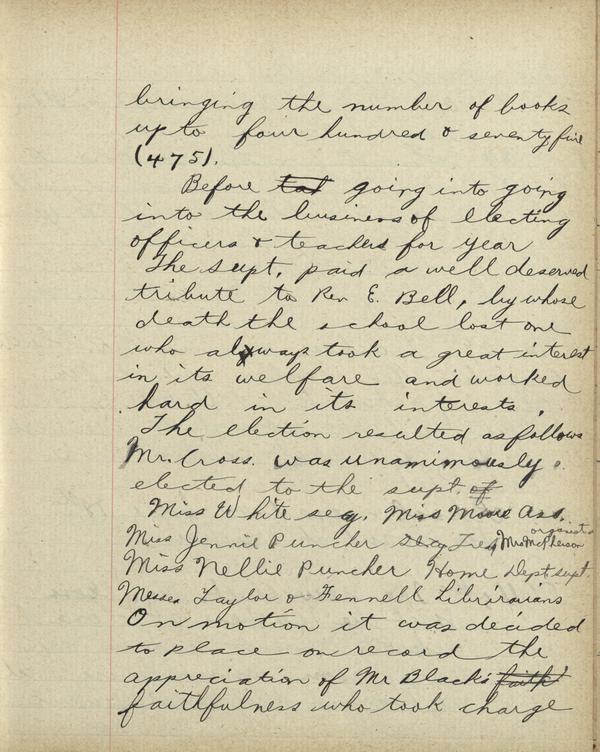 bringing the number of books
up to four hundred & seventy five
(475).
Before tat going into going
into the business of electing
officers & teachers for year
The supt. paid a well deserved
tribute to Rev E. Bell, by whose
death the school lost one
who always took a great interest
in its welfare and worked
hard in its interests.
The election resulted as follows
Mr. Cross. was unamimously
elected to the supt. of
Miss White secy. Miss Moore Ass.
organist
Miss Jennie Puncher Trea Mrs McPherson
Miss Nellie Puncher Home Dept. supt.
Messes Taylor & Fennell Librarians
On motion it was decided
to place on record the
appreciation of Mr Black's faith
faithfulness who took charge